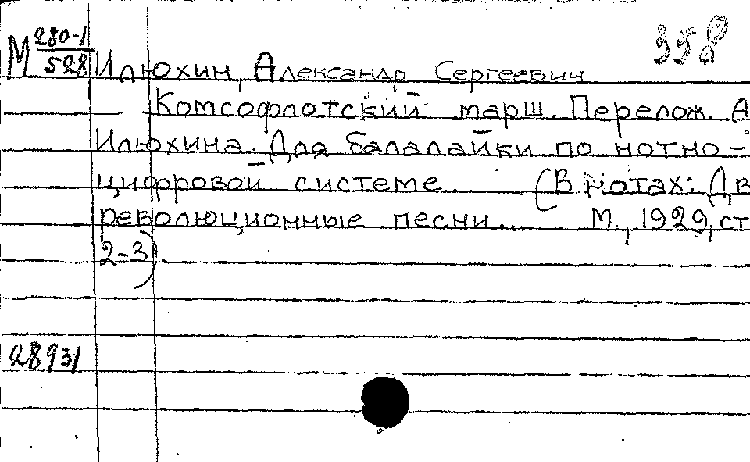 358
М 280-1/528 Илюхин, Александр Сергеевич
Комсофлотский марш. Перелож. А
Илюхина. Для балалайки по нотно-
цифровой системе (В нотах: Дв
революционные песни. М., 1929, ст
2-3).
28931